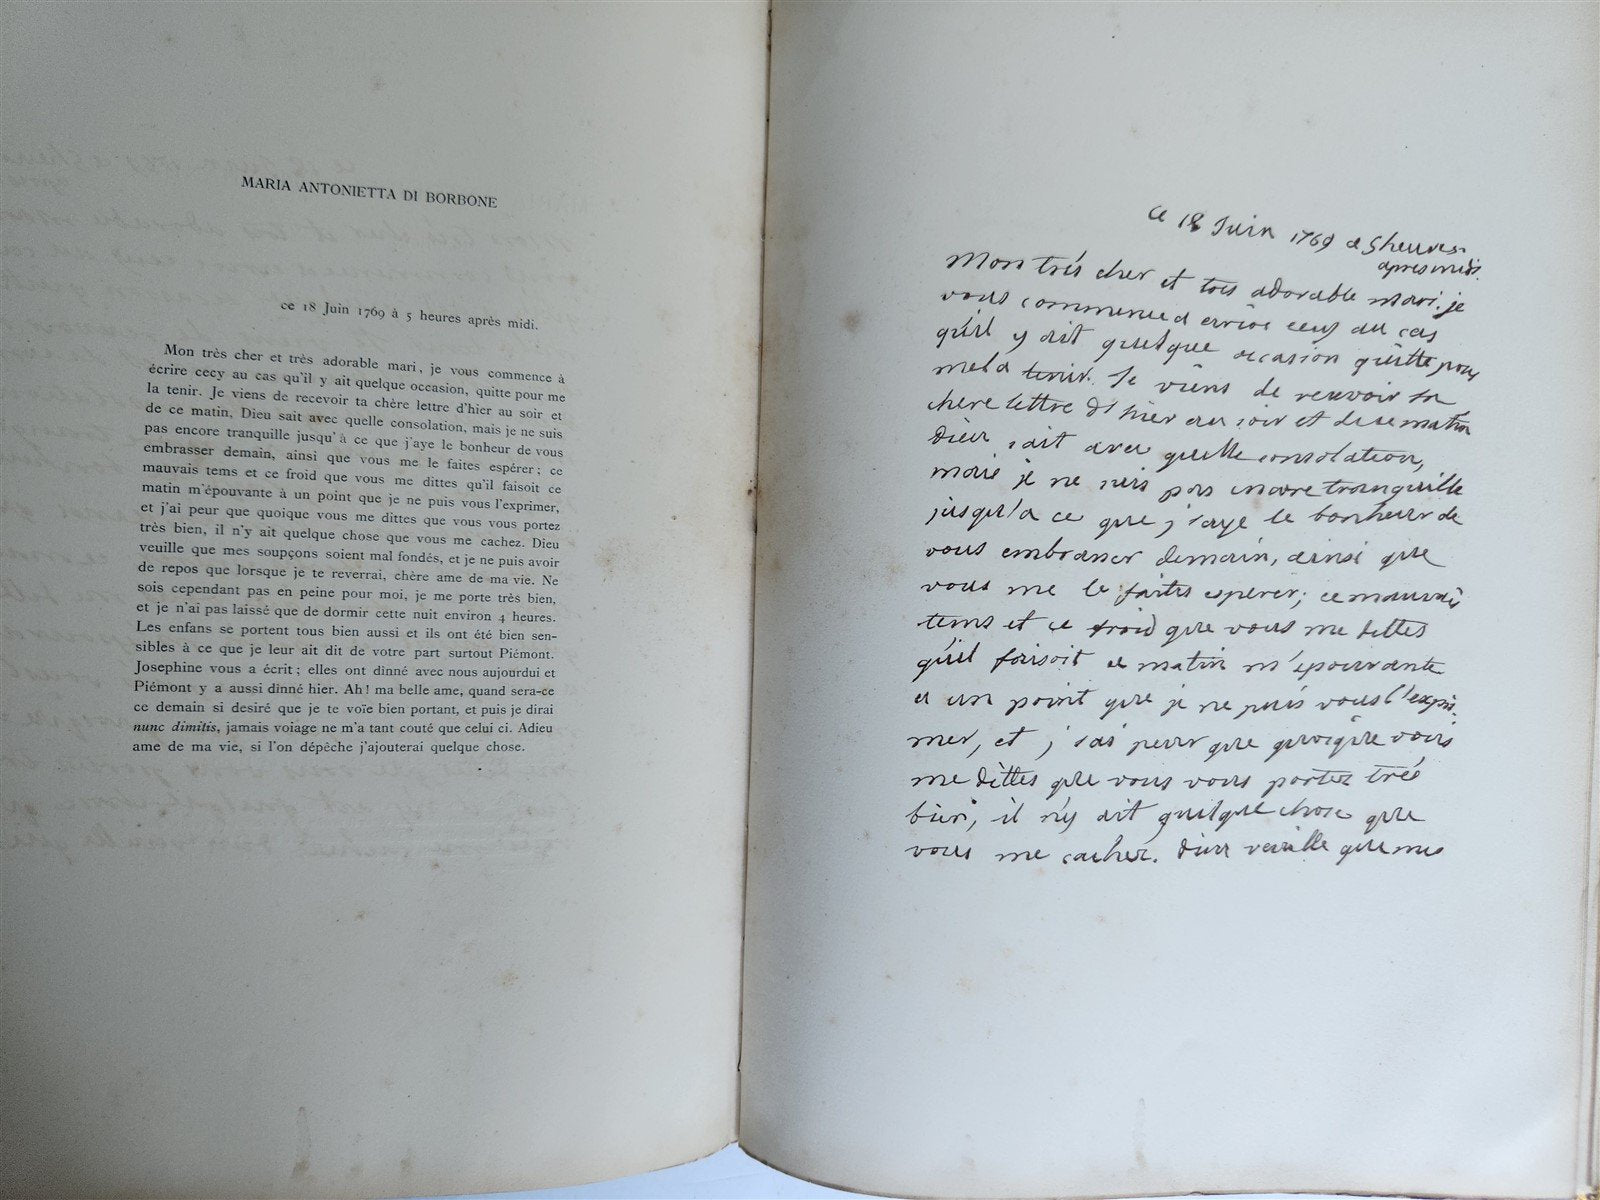 MARIA ANTONIETTA DI BORBONE
ce 18 Juin 1769 à 5 heures après midi.
Mon très cher et très adorable mari, je vous commence à
écrire cecy au cas qu'il y ait quelque occasion, quitte pour me
la tenir. Je viens de recevoir ta chère lettre d'hier au soir et
de ce matin, Dieu sait avec quelle consolation, mais je ne suis
pas encore tranquille jusqu'à ce que j'aye le bonheur de vous
embrasser demain, ainsi que vous me le faites espérer; ce
mauvais tems et ce froid que vous me dittes qu'il faisoit ce
matin m'épouvante à un point que je ne puis vous l'exprimer,
et j'ai peur que quoique vous me dittes que vous vous portez
très bien, il n'y ait quelque chose que vous me cachez. Dieu
veuille que mes soupçons soient mal fondés, et je ne puis avoir
de repos que lorsque je te reverrai, chère ame de ma vie. Ne
sois cependant pas en peine pour moi, je me porte très bien,
et je n'ai pas laissé que de dormir cette nuit environ 4 heures.
Les enfans se portent tous bien aussi et ils ont été bien sen-
sibles à ce que je leur ait dit de votre part surtout Piémont.
Josephine vous a écrit; elles ont dinné avec nous aujourdui et
Piémont y a aussi dinné hier. Ah! ma belle ame, quand sera-ce
ce demain si desiré que je te voïe bien portant, et puis je dirai
nunc dimitis, jamais voiage ne m'a tant couté que celui ci. Adieu
ame de ma vie, si l'on dépêche j'ajouterai quelque chose.
ce 18 Juin 1769 a 5 heures
apres midi.
Mon trés cher et trés adorable mari. je
vous commence a ecrire cecy au cas
qu'il y ait quelque occasion quitte pour
me la tenir. Je viens de recevoir ta
chere lettre d'hier au soir et de ce matin
Dieu sait avec quelle consolation,
mais je ne suis pas encore tranquille
jusqu'a ce que j'aye le bonheur de
vous embrasser demain, ainsi que
vous me le faites esperer; ce mauvais
tems et ce froid que vous me dittes
qu'il faisoit ce matin m'epouvante
a un point que je ne puis vous l'expri-
mer, et j'ai peur que quoique vous
me dittes que vous vous portez trés
bien, il n'y ait quelque chose que
vous me cachez. Dieu veuille que mes